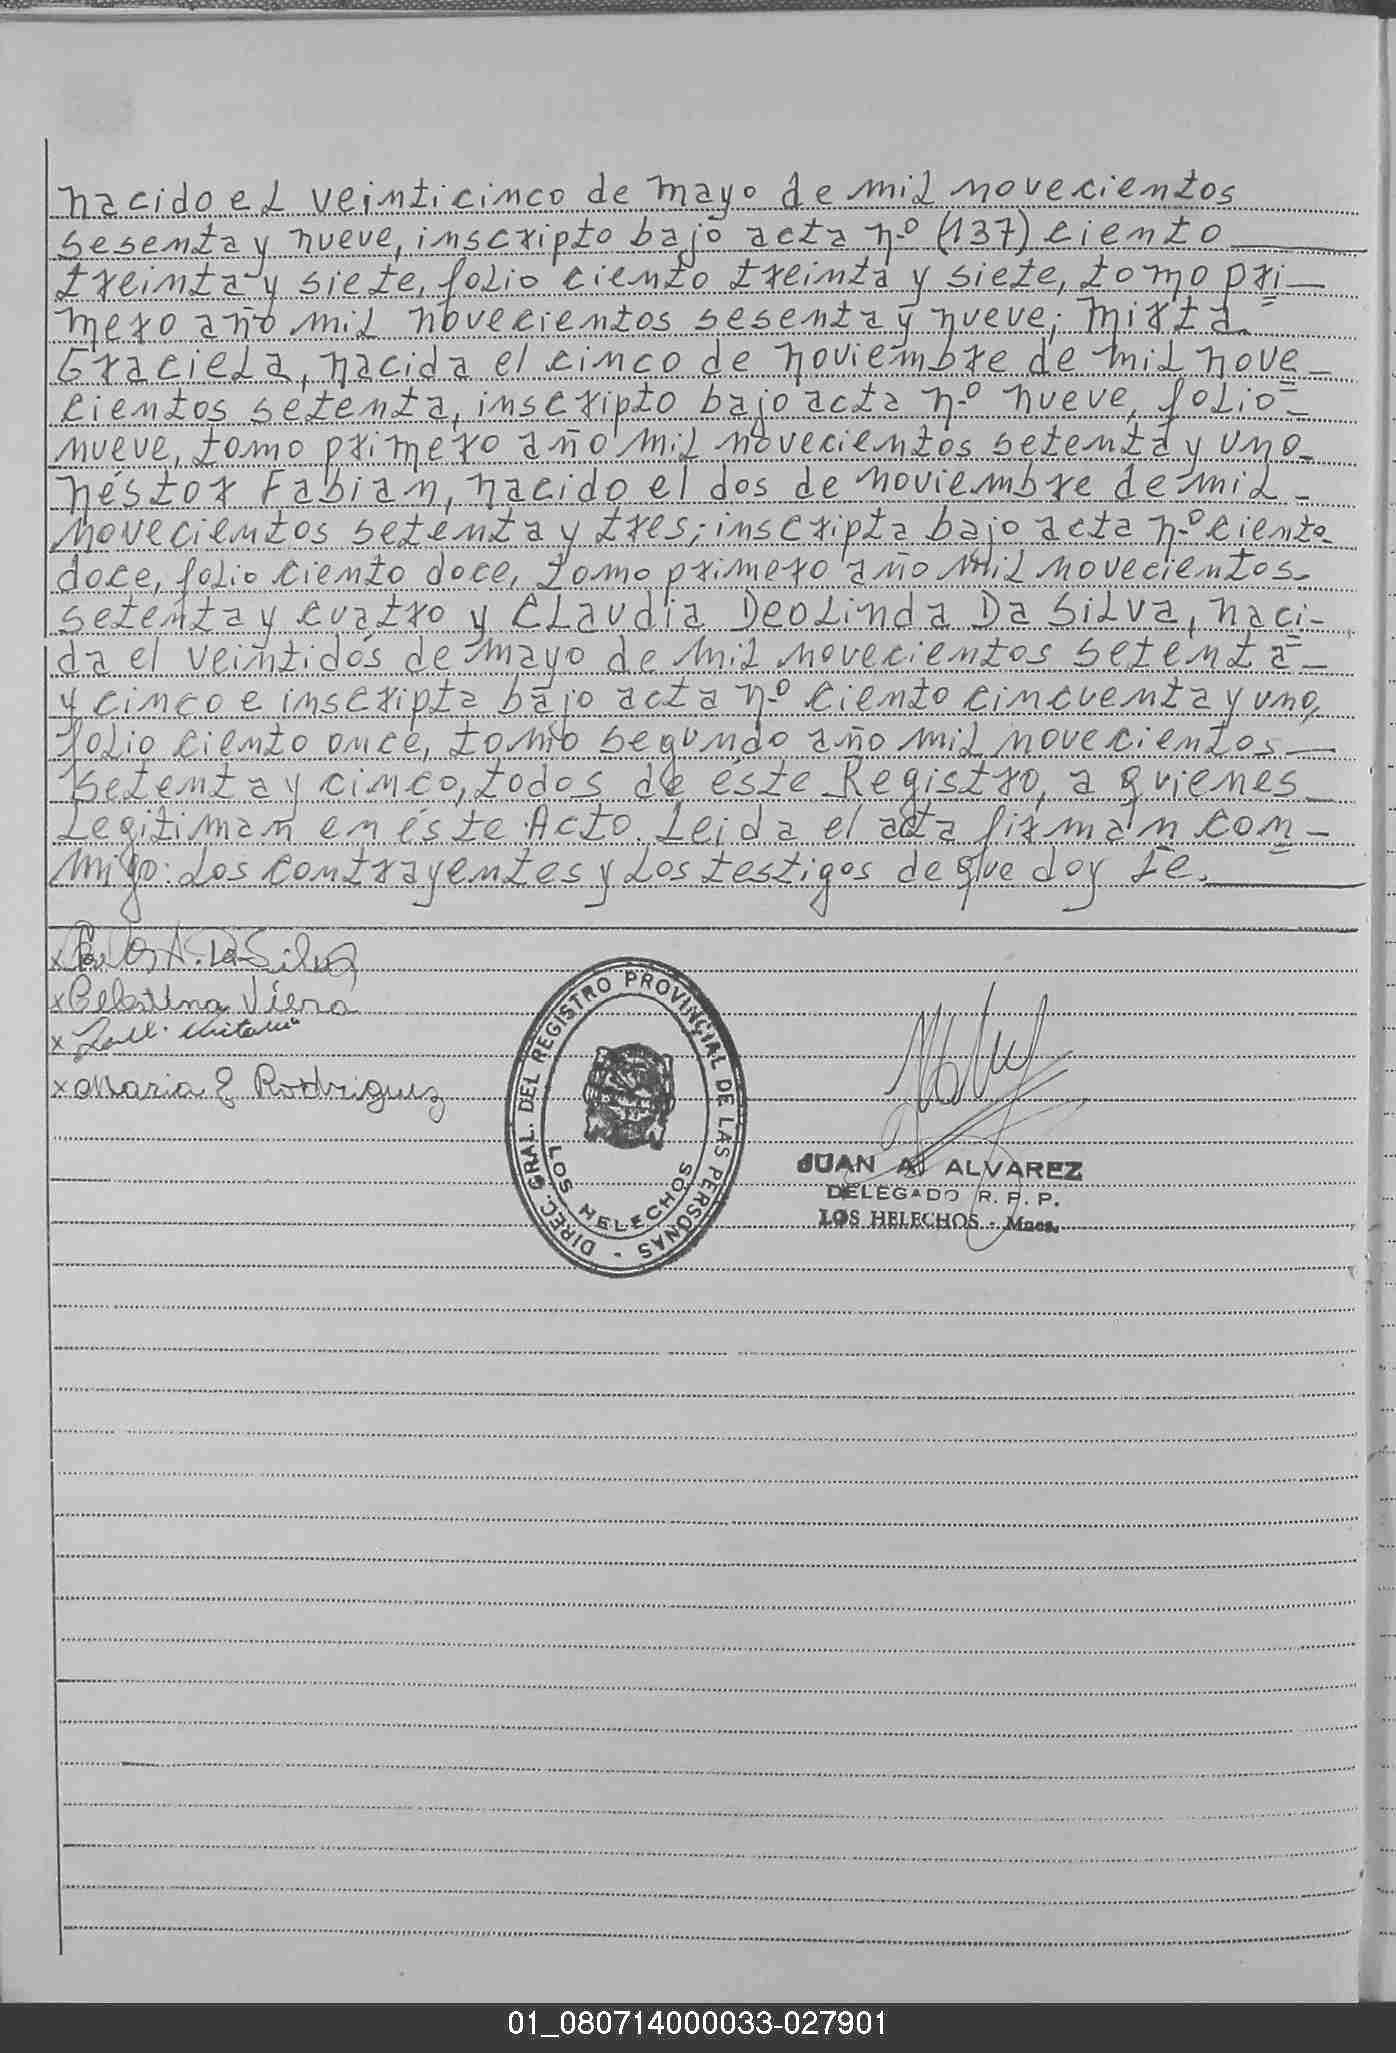 nacido el veinticinco de mayo de mil novecientos
sesenta y nueve, inscripto bajo acta nº (137) ciento
treinta y siete, folio ciento treinta y siete, tomo pri-
mero año mil novecientos sesenta y nueve; Mirta
Graciela, nacida el cinco de noviembre de mil nove-
cientos setenta, inscripto bajo acta nº nueve, folio
nueve, tomo primero año mil novecientos setenta y uno
Néstor Fabian, nacido el dos de noviembre de mil
novecientos setenta y tres; inscripta bajo acta nº ciento
doce, folio ciento doce, tomo primero año mil novecientos
setenta y cuatro y Claudia Deolinda Da Silva, naci-
da el veintidós de mayo de mil novecientos setenta
y cinco e inscripta bajo acta nº ciento cincuenta y uno,
folio ciento once, tomo segundo año mil novecientos
setenta y cinco, todos de éste Registro, a quienes
Legitiman en éste Acto. Leida el acta firman con-
migo: Los contrayentes y Los testigos de que doy fe.
x Carlos A. Da Silva
x Celestina Viera
x
x Maria E Rodriguez
DIREC. GRAL. DEL REGISTRO PROVINCIAL DE LAS PERSONAS -
LOS HELECHOS
JUAN A. ALVAREZ
DELEGADO R. P. P.
LOS HELECHOS - Mnes.
01_080714000033-027901